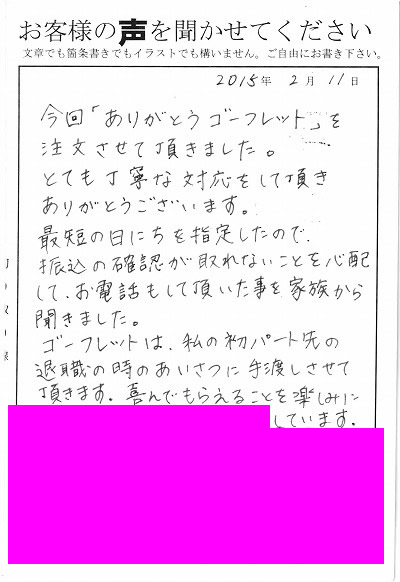 お客様の声を聞かせてください
文章でも箇条書きでもイラストでも構いません。ご自由にお書き下さい。
2015年 2月 11日
今回「ありがとうゴーフレット」を
注文させて頂きました。
とても丁寧な対応をして頂き
ありがとうございます。
最短の日にちを指定したので、
振込の確認が取れないことを心配
して、お電話もして頂いた事を家族から
聞きました。
ゴーフレットは、私の初パート先の
退職の時のあいさつに手渡しさせて
頂きます。喜んでもらえることを楽しみに
しています。